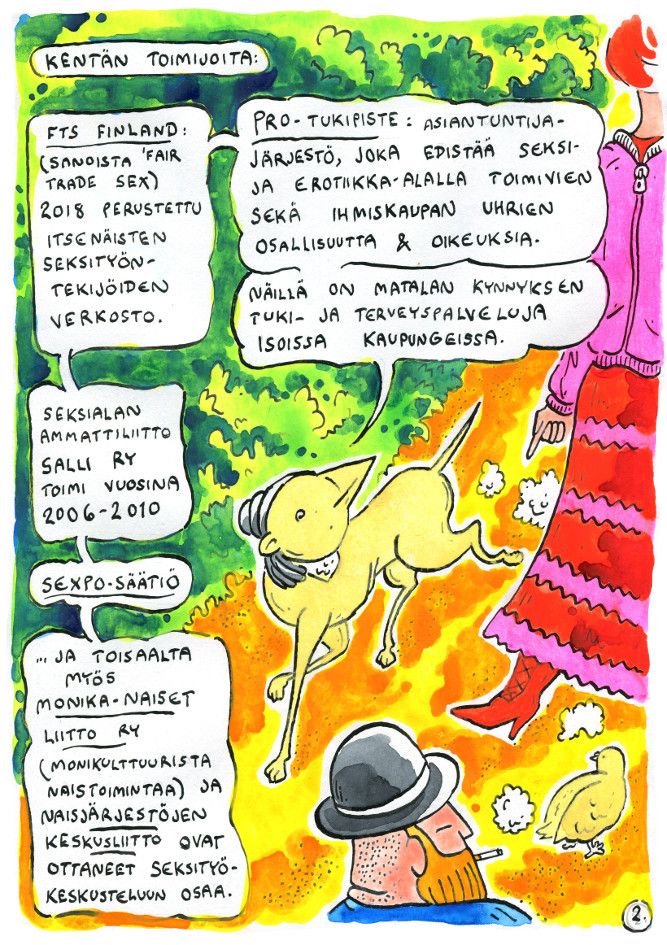 KENTÄN TOIMIJOITA:
FTS FINLAND:
(SANOISTA 'FAIR
TRADE SEX)
2018 PERUSTETTU
ITSENÄISTEN
SEKSITYÖN-
TEKIJÖIDEN
VERKOSTO.
PRO-TUKIPISTE: ASIANTUNTIJA-
JÄRJESTÖ, JOKA EDISTÄÄ SEKSI-
JA EROTIIKKA-ALALLA TOIMIVIEN
SEKÄ IHMISKAUPAN UHRIEN
OSALLISUUTTA & OIKEUKSIA.
NÄILLÄ ON MATALAN KYNNYKSEN
TUKI- JA TERVEYSPALVELUJA
ISOISSA KAUPUNGEISSA.
SEKSIALAN
AMMATTILIITTO
SALLI RY
TOIMI VUOSINA
2006-2010
SEXPO-SÄÄTIÖ
... JA TOISAALTA
MYÖS
MONIKA-NAISET
LIITTO RY
(MONIKULTTUURISTA
NAISTOIMINTAA) JA
NAISJÄRJESTÖJEN
KESKUSLIITTO OVAT
OTTANEET SEKSITYÖ-
KESKUSTELUUN OSAA.
2.